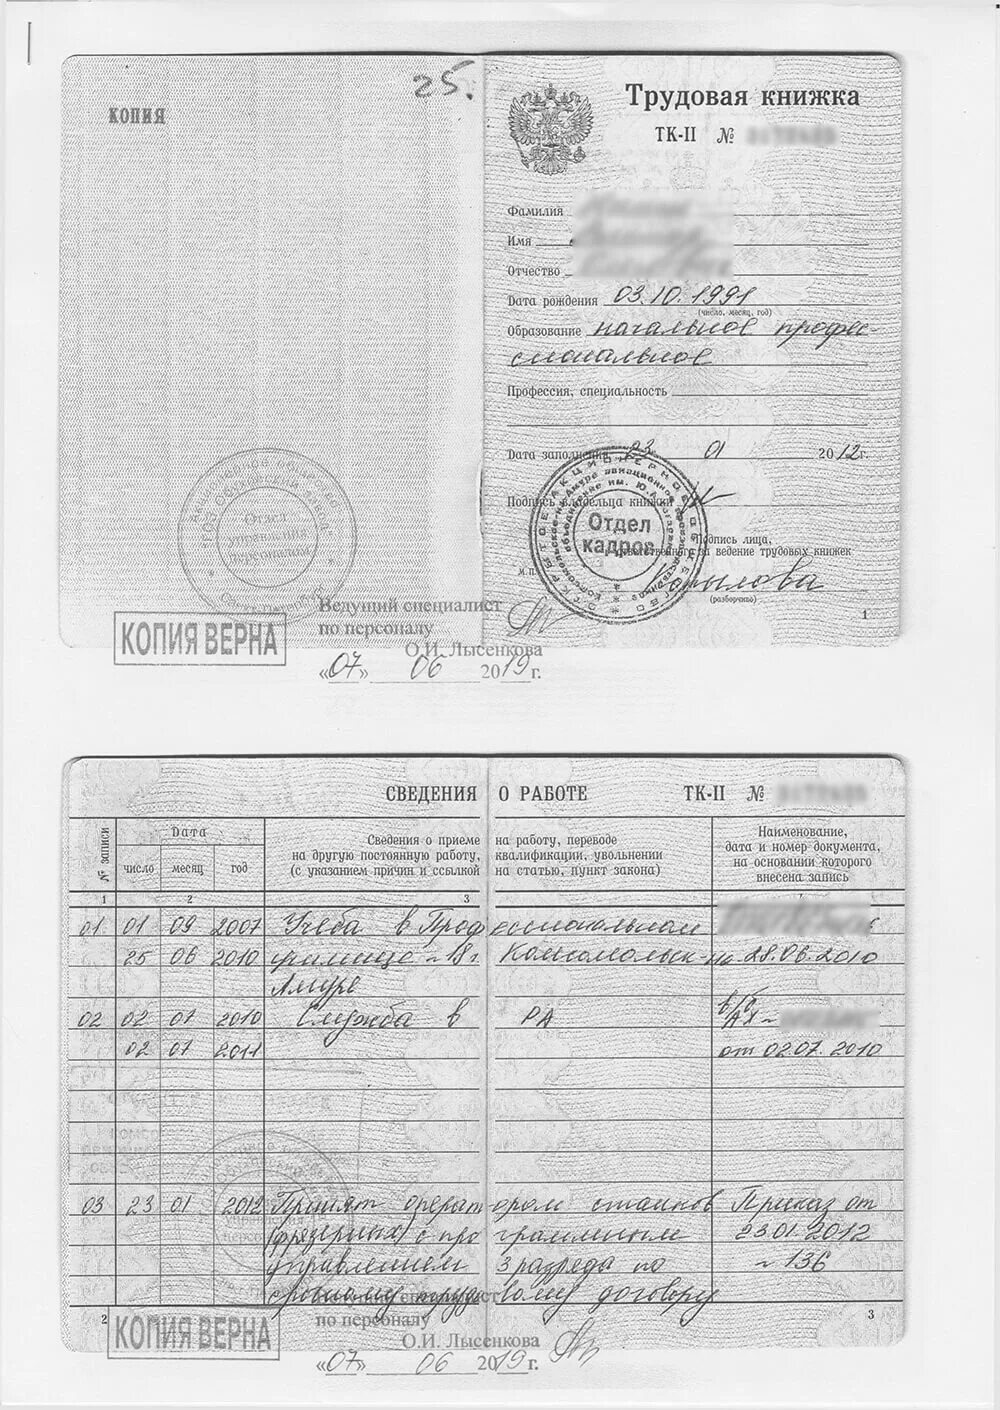 25.
КОПИЯ
Трудовая книжка
ТК-II №
Фамилия
Имя
Отчество
Дата рождения 03.10.1991
(число, месяц, год)
Образование начальное профес-
сиональное
Профессия, специальность
Дата заполнения 23 01 2012 г.
Подпись владельца книжки
Отдел
кадров
Подпись лица,
ответственного за ведение трудовых книжек
М.П.
Копылова
(разборчиво)
1
Отдел
управления
персоналом
Санкт-Петербург
КОПИЯ ВЕРНА
Ведущий специалист
по персоналу
О.И. Лысенкова
«07» 06 2019 г.
СВЕДЕНИЯ О РАБОТЕ ТК-II №
№ записи
Дата
число месяц год
Сведения о приеме на работу, переводе
на другую постоянную работу, квалификации, увольнении
(с указанием причин и ссылкой на статью, пункт закона)
Наименование,
дата и номер документа,
на основании которого
внесена запись
1 2 3
01 01 09 2007 Учеба в Профессиональном
25 06 2010 училище №18 г. Комсомольск-на- 28.06.2010
Амуре
02 02 07 2010 Служба в РА в/б АХ №
02 07 2011 от 02.07.2010
03 23 01 2012 Принят оператором станков Приказ от
(фрезерных) с программным 23.01.2012
управлением 3 разряда по №136
срочному трудовому договору
2
3
КОПИЯ ВЕРНА
Ведущий специалист
по персоналу
О.И. Лысенкова
«07» 06 2019 г.